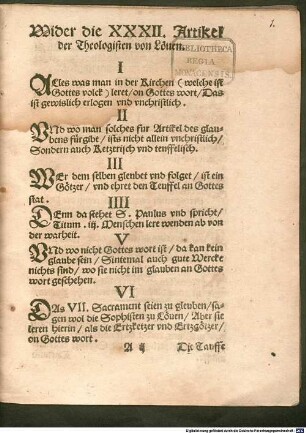 1.
Wider die XXXII. Artikel
der Theologisten von Löuen.
BIBLIOTHECA
REGIA
MONACENSIS.
I
ALles was man in der Kirchen (welche ist
Gottes volck) leret/on Gottes wort/Das
ist gewislich erlogen vnd vnchristlich.
II
VNd wo man solches fur Artikel des glau-
bens fürgibt/ ists nicht allein vnchristlich/
Sondern auch Ketzerisch vnd teuffelisch.
III
WEr dem selben gleubet vnd folget/ist ein
Götzer/ vnd ehret den Teuffel an Gottes
stat.
IIII
DEnn da stehet S. Paulus vnd spricht/
Titum. iij. Menschen lere wenden ab von
der warheit.
V
VNd wo nicht Gottes wort ist/ da kan kein
glaube sein/ Sintemal auch gute Wercke
nichts sind/ wo sie nicht im glauben an Gottes
wort geschehen.
VI
DAs VII. Sacrament seien zu gleuben/sa-
gen wol die Sophisten zu Löuen/ Aber sie
leren hierin/ als die Ertzketzer vnd Ertzgötzer/
on Gottes wort.
A ij Die Tauffe